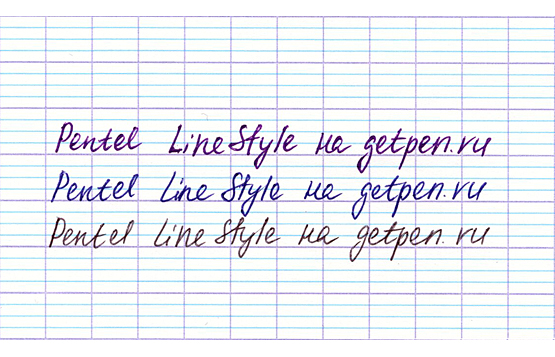 Pentel LineStyle на getpen.ru
Pentel Line Style на getpen.ru
Pentel Line Style на getpen.ru